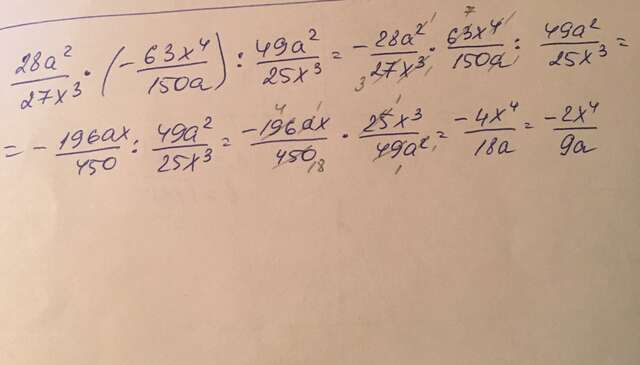 28a²/27x³ · (−63x⁴/150a) : 49a²/25x³ = −28a²/27x³ · 63x⁴/150a : 49a²/25x³ =
= −196ax/450 : 49a²/25x³ = −196ax/450 · 25x³/49a² = −4x⁴/18a = −2x⁴/9a